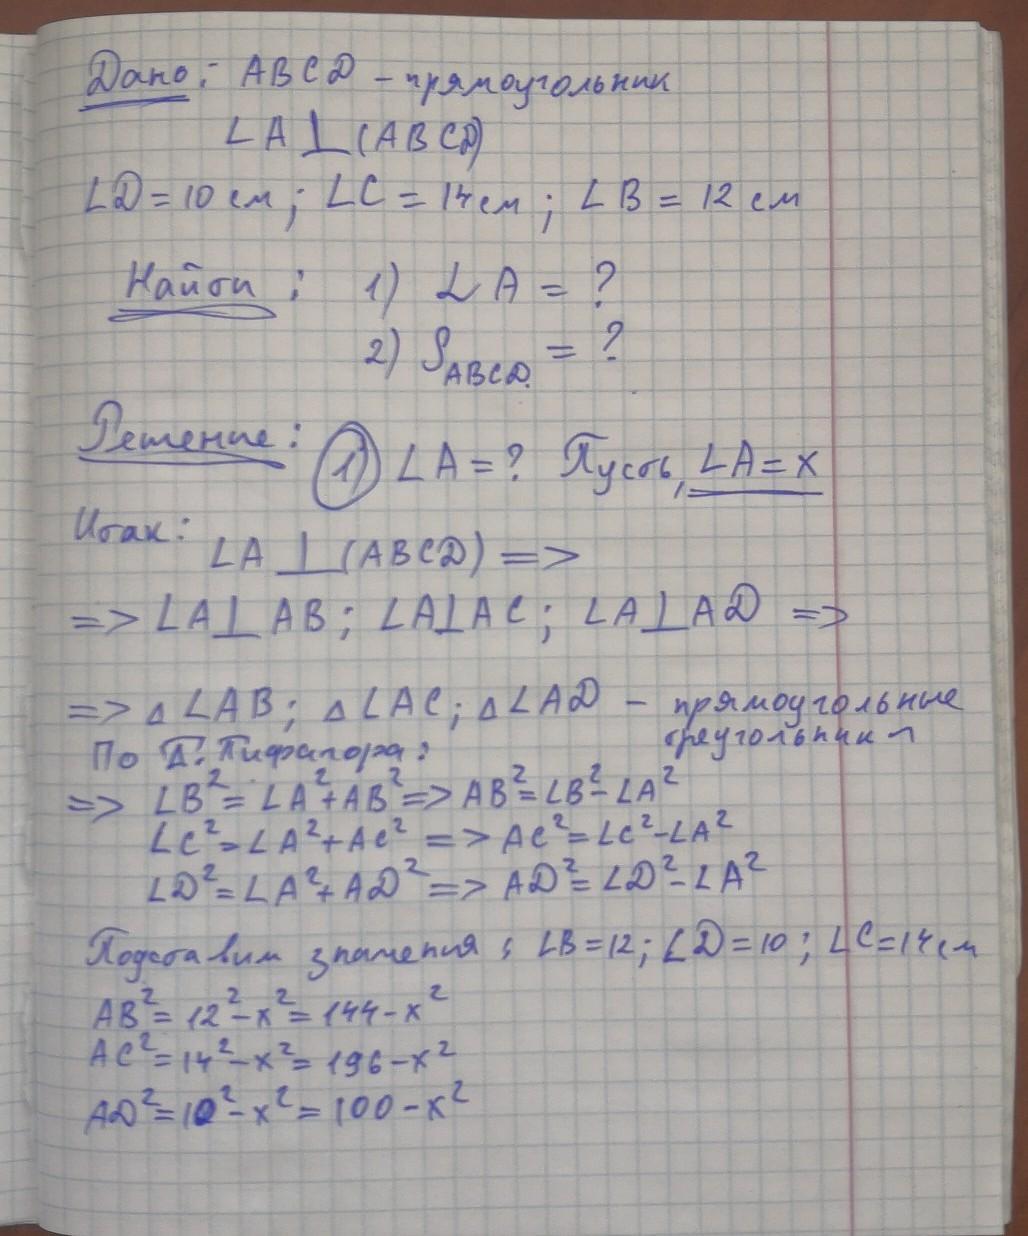 Дано: ABCD – прямоугольник
LA⊥(ABCD)
LD = 10 см; LC = 14 см; LB = 12 см
Найти: 1) LA = ?
2) S_ABCD = ?
Решение: 1) LA = ? Пусть, LA = x
Итак:
LA ⊥ (ABCD) =>
=> LA⊥AB; LA⊥AC; LA⊥AD =>
=> △LAB; △LAC; △LAD – прямоугольные
треугольники
По Т. Пифагора:
=> LB² = LA² + AB² => AB² = LB² – LA²
LC² = LA² + AC² => AC² = LC² – LA²
LD² = LA² + AD² => AD² = LD² – LA²
Подставим значения: LB = 12; LD = 10; LC = 14 см
AB² = 12² – x² = 144 – x²
AC² = 14² – x² = 196 – x²
AD² = 10² – x² = 100 – x²